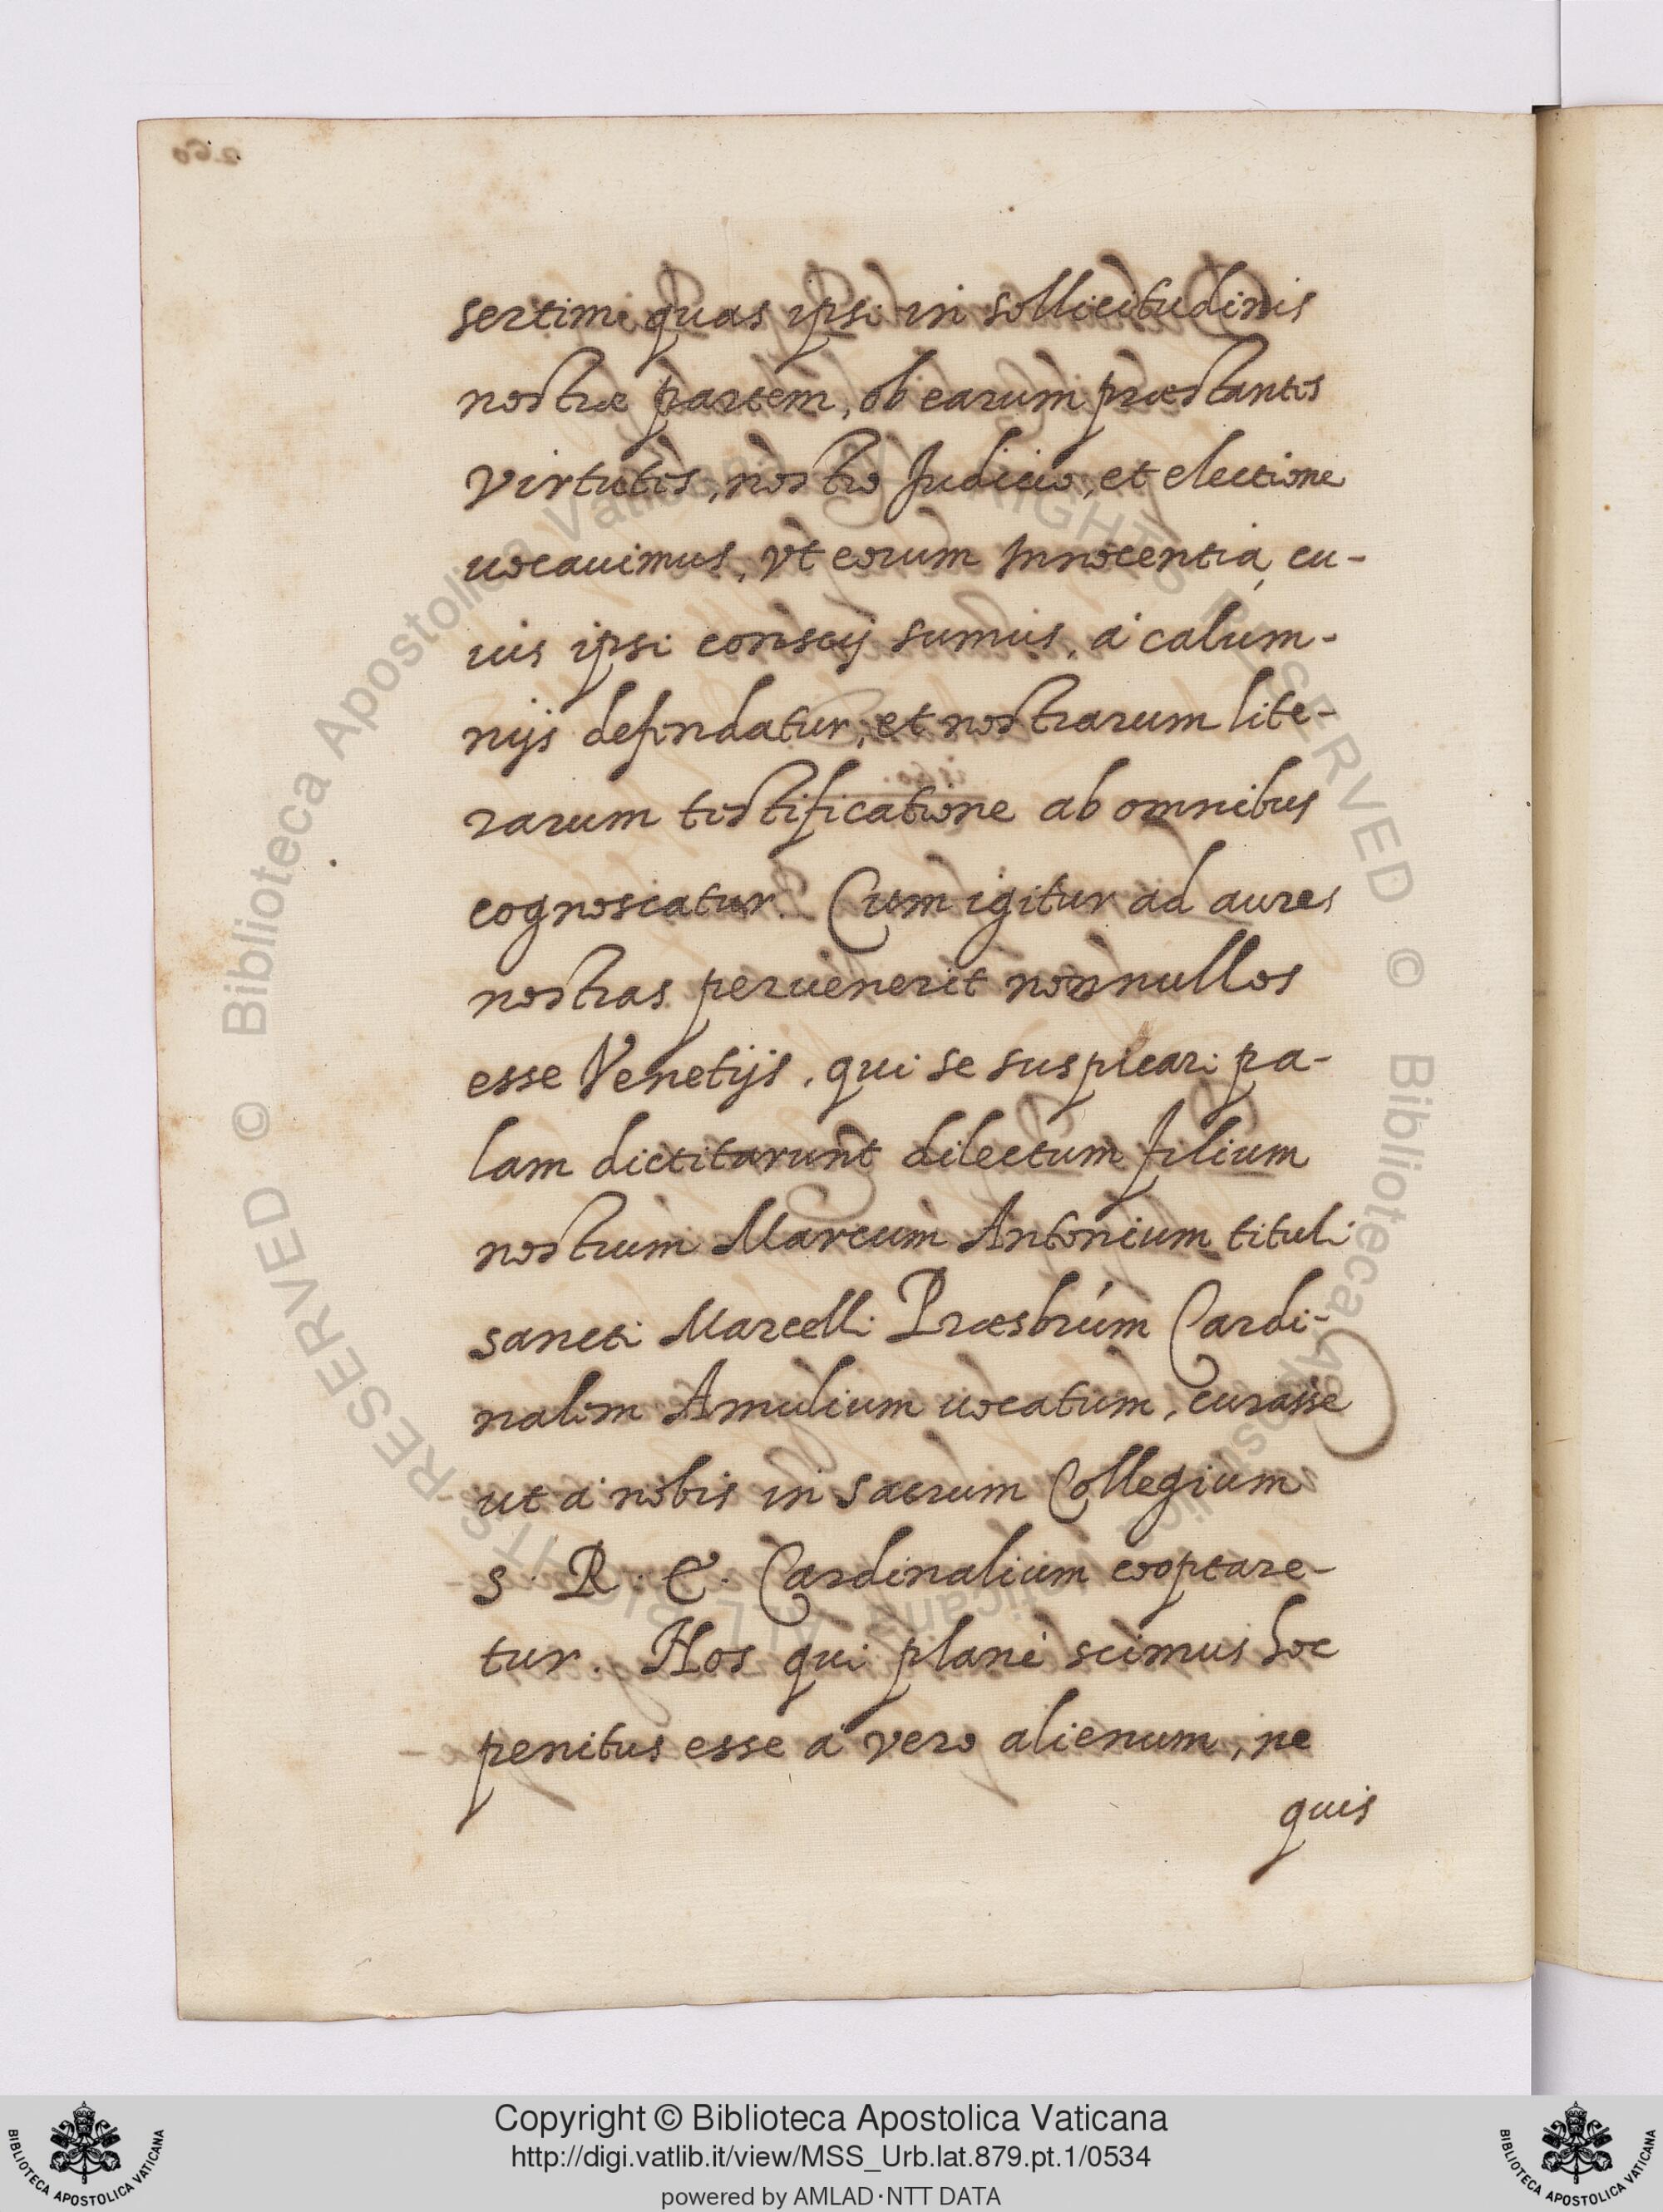 sertim quas ipsi in sollicitudinis
nostræ partem, ob earum præstantis
virtutis, nostro Judicio, et electione
uocauimus, vt eorum Innocentia, cu-
ius ipsi conscij sumus, à calum-
nijs defendatur, et nostrarum lite-
rarum testificatione ab omnibus
cognoscatur. Cum igitur ad aures
nostras peruenerit nonnullos
esse Venetijs, qui se suspicari pa-
lam dictitarunt dilectum filium
nostrum Marcum Antonium tituli
sancti Marcelli Præsbrúm Cardi-
nalem Amulium uocatum, curasse
ut à nobis in sacrum Collegium
S. R. E. Cardinalium cooptare-
tur. Nos qui planè scimus hoc
penitus esse à vero alienum, ne
quis
© Biblioteca Apostolica Vaticana ALL RIGHTS RESERVED © Biblioteca Apostolica Vaticana ALL RIGHTS RESERVED
BIBLIOTECA APOSTOLICA VATICANA
Copyright © Biblioteca Apostolica Vaticana
http://digi.vatlib.it/view/MSS_Urb.lat.879.pt.1/0534
powered by AMLAD·NTT DATA
BIBLIOTECA APOSTOLICA VATICANA